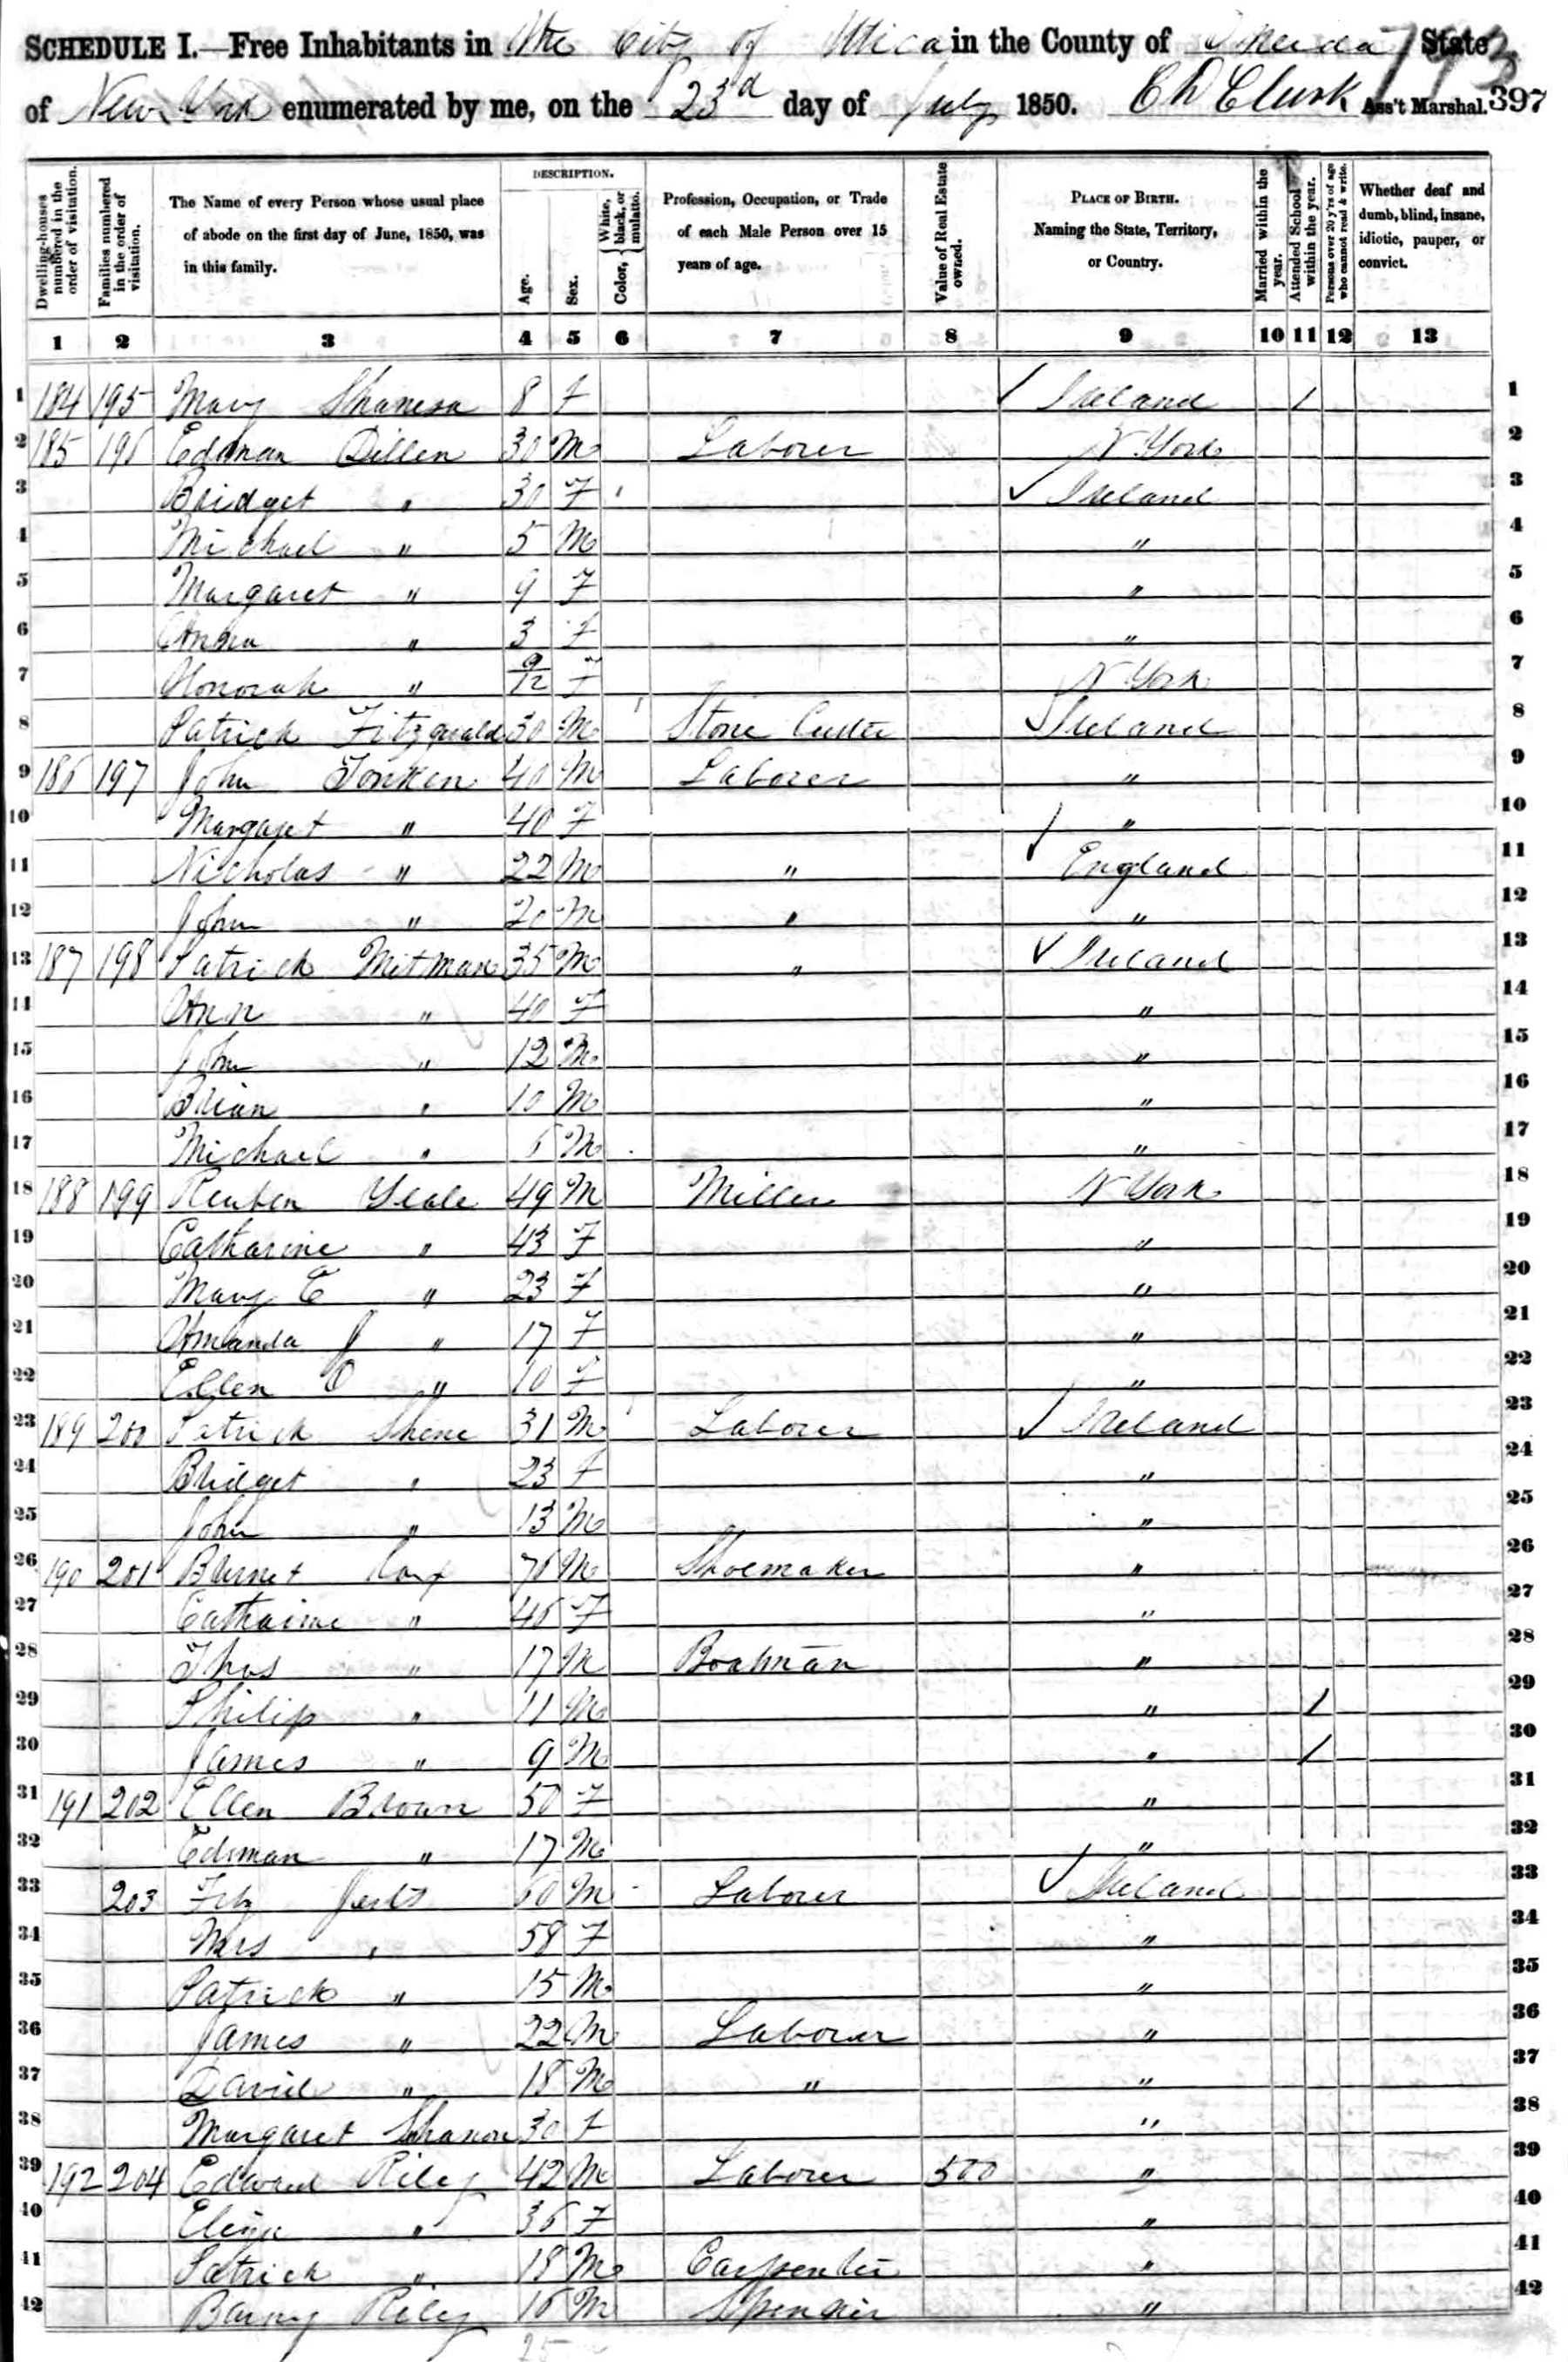 SCHEDULE I.—Free Inhabitants in the City of Utica in the County of Oneida State 793
of New York enumerated by me, on the 23d day of July 1850. C D Clark Ass't Marshal. 397
Dwelling-houses numbered in the order of visitation.
Families numbered in the order of visitation.
The Name of every Person whose usual place of abode on the first day of June, 1850, was in this family.
DESCRIPTION.
Age.
Sex.
Color, { White, black, or mulatto.
Profession, Occupation, or Trade of each Male Person over 15 years of age.
Value of Real Estate owned.
PLACE OF BIRTH. Naming the State, Territory, or Country.
Married within the year.
Attended School within the year.
Persons over 20 y'rs of age who cannot read & write.
Whether deaf and dumb, blind, insane, idiotic, pauper, or convict.
1 2 3 4 5 6 7 8 9 10 11 12 13
1 184 195 Mary 8 F ✓ Ireland / 1
2 185 196 Edman Dillen 30 M Laborer N York 2
3 Bridget " 30 F ✓ Ireland 3
4 Michael " 5 M " 4
5 Margaret " 9 F " 5
6 Anna " 3 F " 6
7 Honorah " 9/12 F N York 7
8 Patrick Fitzgerald 30 M Stone Cutter ✓ Ireland 8
9 186 197 John Tonken 40 M Laborer " 9
10 Margaret " 40 F ✓ " 10
11 Nicholas " 22 M " England 11
12 John " 20 M " " 12
13 187 198 Patrick Mitman 35 M " ✓ Ireland 13
14 Ann " 40 F " 14
15 John " 12 M " 15
16 Brian " 10 M " 16
17 Michael " 6 M " 17
18 188 199 Reuben Yeale 49 M Miller N York 18
19 Catharine " 43 F " 19
20 Mary E " 23 F " 20
21 Amanda J " 17 F " 21
22 Ellen O " 10 F " 22
23 189 200 Patrick Shene 31 M Laborer ✓ Ireland 23
24 Bridget " 23 F " 24
25 John " 13 M " 25
26 190 201 Burnet 76 M Shoemaker " 26
27 Catharine " 46 F " 27
28 Thos " 17 M Boatman " 28
29 Philip " 11 M " / 29
30 James " 9 M " / 30
31 191 202 Ellen Brown 50 F " 31
32 Edman " 17 M " 32
33 203 60 M Laborer ✓ Ireland 33
34 Mrs " 58 F " 34
35 Patrick " 15 M " 35
36 James " 22 M Laborer " 36
37 David " 18 M " " 37
38 Margaret Shanon 30 F " 38
39 192 204 Edward Riley 42 M Laborer 500 " 39
40 Eliza " 36 F " 40
41 Patrick " 18 M Carpenter " 41
42 Barny Riley 16 M " 42
25